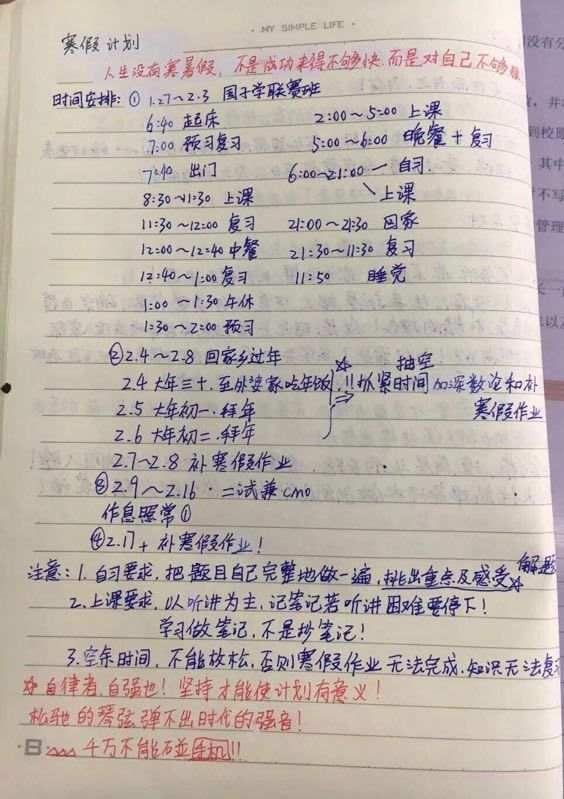 · MY SIMPLE LIFE ·
寒假计划
人生没有寒暑假，不是成功来得不够快，而是对自己不够狠
时间安排：① 1.27～2.3 国子学联赛班
6:40 起床 2:00～5:00 上课
7:00 预习复习 5:00～6:00 晚餐＋复习
7:40 出门 6:00～21:00 — 自习.
8:30～11:30 上课 上课
11:30～12:00 复习 21:00～21:30 回家
12:00～12:40 中餐 21:30～11:30 复习
12:40～1:00 复习 11:50 睡觉
1:00～1:30 午休
1:30～2:00 预习
② 2.4～2.8 回家乡过年 抽空
2.4 大年三十. 至外婆家吃年饭. !!抓紧时间 加深数论和补
2.5 大年初一. 拜年 ⇒ 寒假作业
2.6 大年初二. 拜年
2.7～2.8 补寒假作业
③ 2.9～2.16. 二试兼CMO
作息照常①
④ 2.17＋ 补寒假作业！
注意：1. 自习要求，把题目自己完整地做一遍，挑出重点及感受 解题
2. 上课要求，以听讲为主，记笔记若听讲困难要停下！
学习做笔记，不是抄笔记！
3. 空余时间，不能放松，否则寒假作业无法完成，知识无法复习
☆ 自律者，自强也！坚持才能使计划有意义！
松驰的琴弦弹不出时代的强音！
千万不能碰手机!!